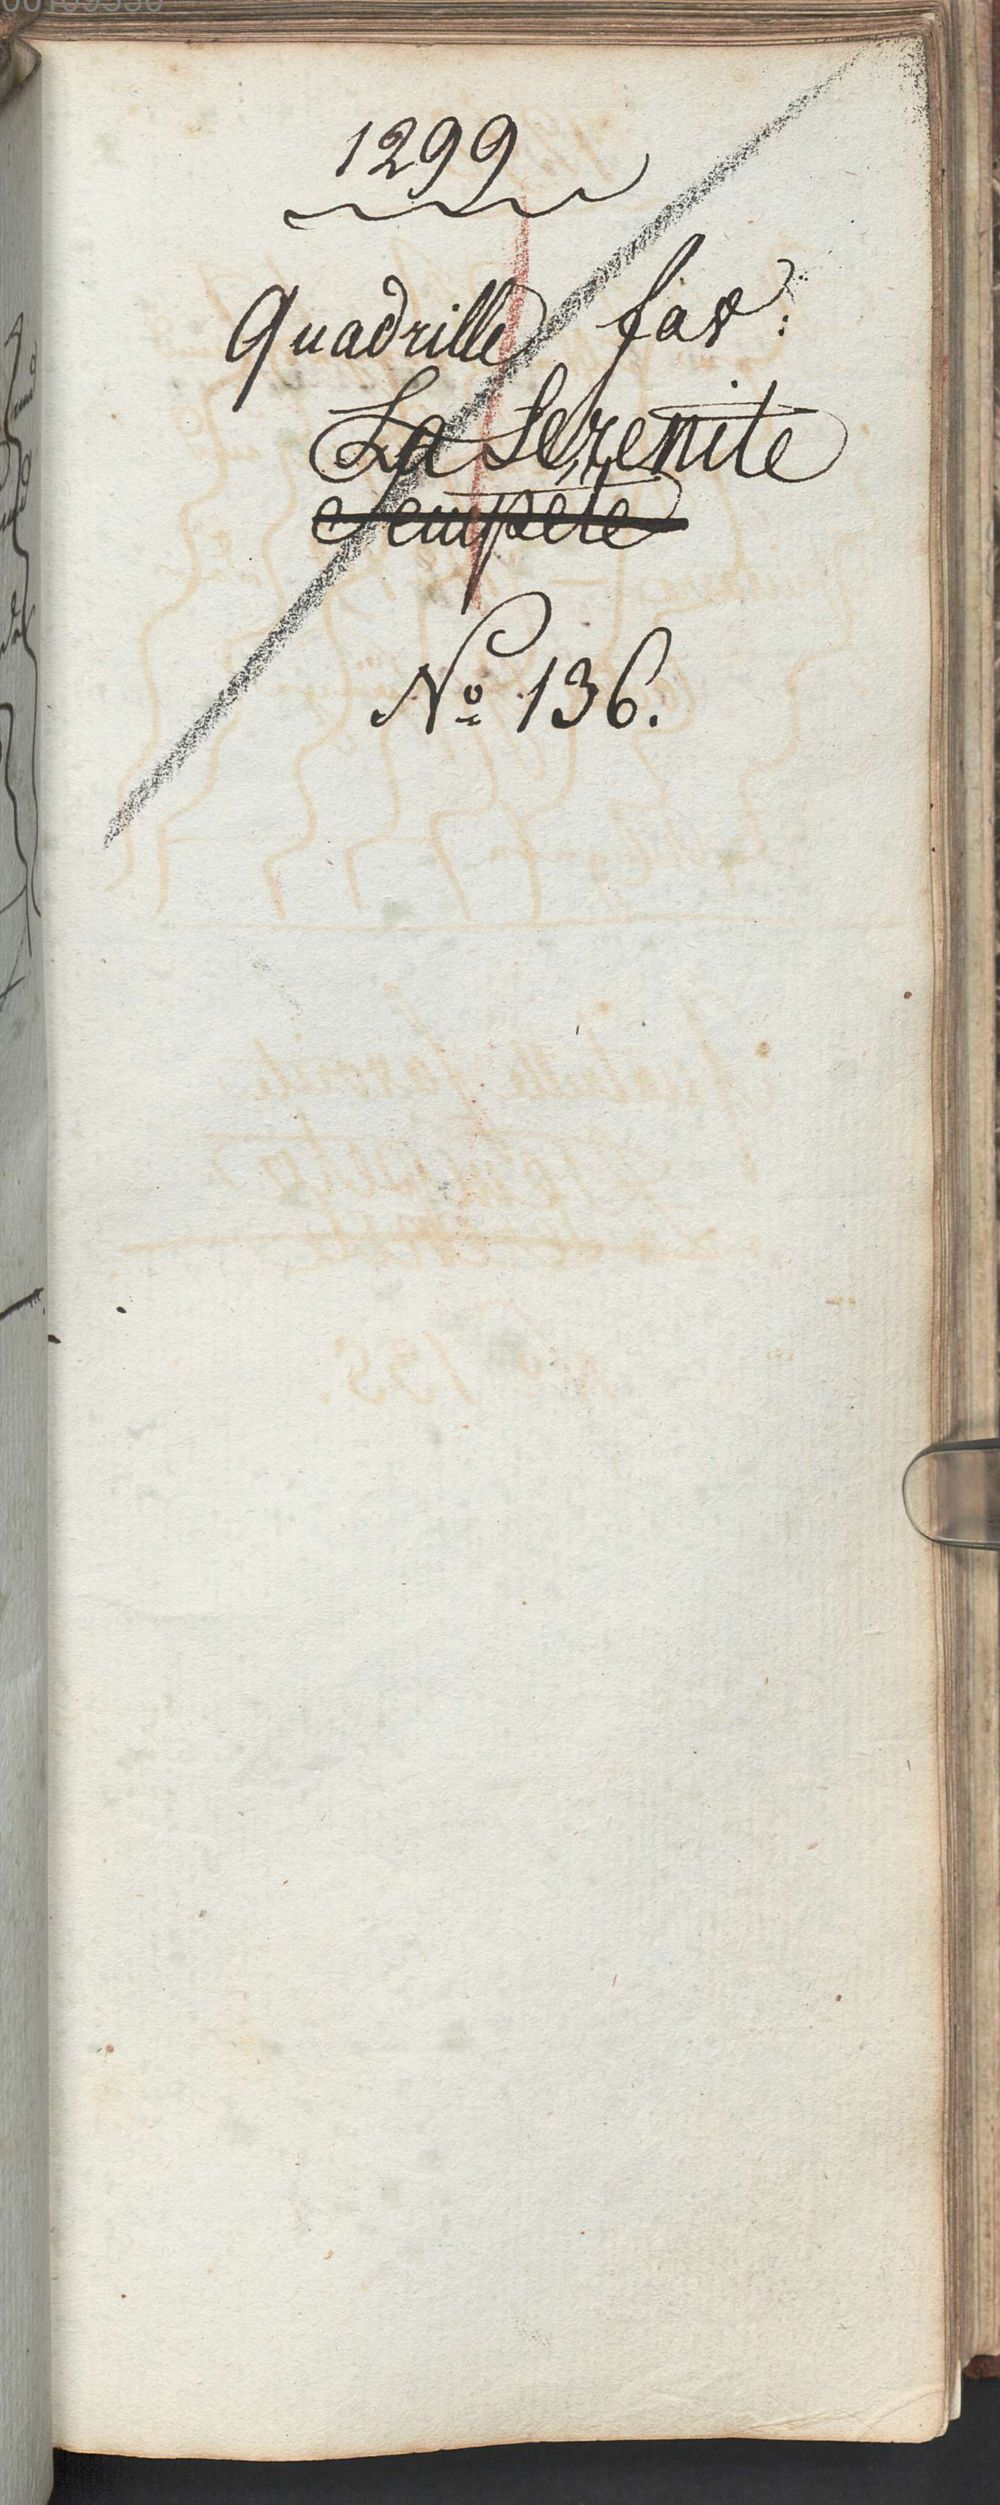 00109550
1299
Quadrille fav:
La Serenite
Tempete
No 136.